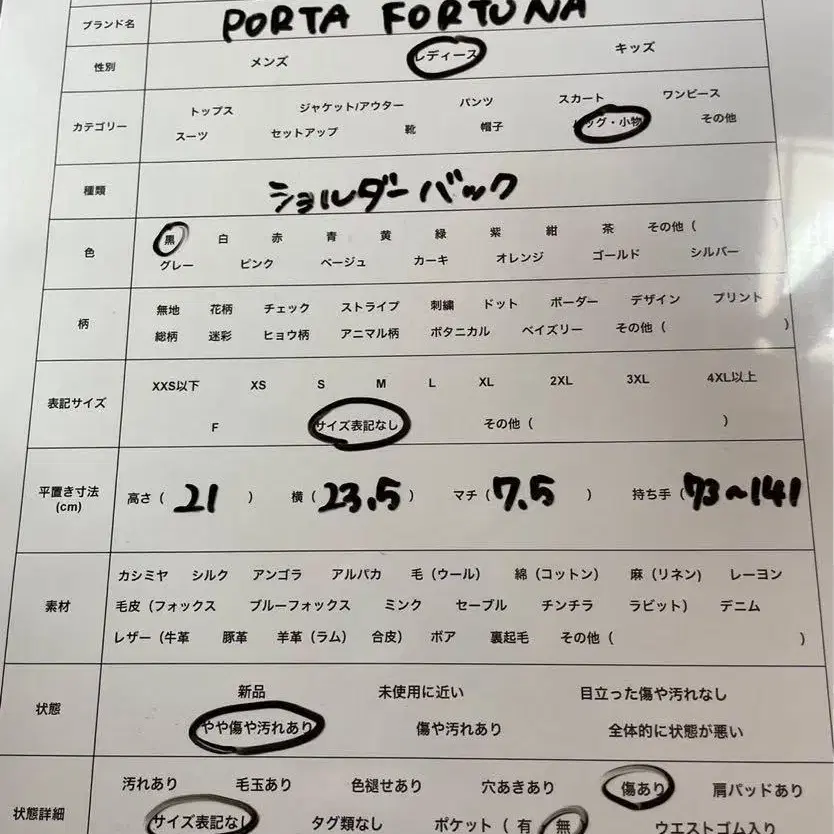 ブランド名 PORTA FORTUNA
性別 メンズ レディース キッズ
カテゴリー トップス ジャケット/アウター パンツ スカート ワンピース
スーツ セットアップ 靴 帽子 バッグ・小物 その他
種類 ショルダーバック
色 黒 白 赤 青 黄 緑 紫 紺 茶 その他（
グレー ピンク ベージュ カーキ オレンジ ゴールド シルバー
柄 無地 花柄 チェック ストライプ 刺繍 ドット ボーダー デザイン プリント
総柄 迷彩 ヒョウ柄 アニマル柄 ボタニカル ペイズリー その他（ ）
表記サイズ XXS以下 XS S M L XL 2XL 3XL 4XL以上
F サイズ表記なし その他（ ）
平置き寸法 高さ（ 21 ） 横（ 23.5 ） マチ（ 7.5 ） 持ち手（ 73〜141
(cm)
素材 カシミヤ シルク アンゴラ アルパカ 毛（ウール） 綿（コットン） 麻（リネン） レーヨン
毛皮（フォックス ブルーフォックス ミンク セーブル チンチラ ラビット） デニム
レザー（牛革 豚革 羊革（ラム） 合皮） ボア 裏起毛 その他（ ）
状態 新品 未使用に近い 目立った傷や汚れなし
やや傷や汚れあり 傷や汚れあり 全体的に状態が悪い
状態詳細 汚れあり 毛玉あり 色褪せあり 穴あきあり 傷あり 肩パッドあり
サイズ表記なし タグ類なし ポケット（ 有 無 ウエストゴム入り